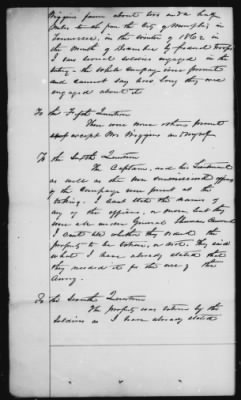 Wiggins farm about two and a half
miles from the City of Memphis in
Tennessee, in the winter of 1862 in
the Month of December by Federal troops
I saw several soldiers engaged in the
taking - the Whole Company were present
and cannot say how long they were
engaged about it
To the Fifth Question
There were none others present
except Mrs Wiggins and myself
To the Sixth Question
The Captain, and his Lieutenant
as well as the non commissioned officers
of the Company were present at the
taking. I can't state the names of
any of the officers, or men, but they
were all under General Sherman's Command
I can't tell whether they ordered the
property to be taken, or not. They said
what I have already stated that
they needed it for the use of the
Army.
To the Seventh Question
The property was taken by the
Soldiers as I have already stated